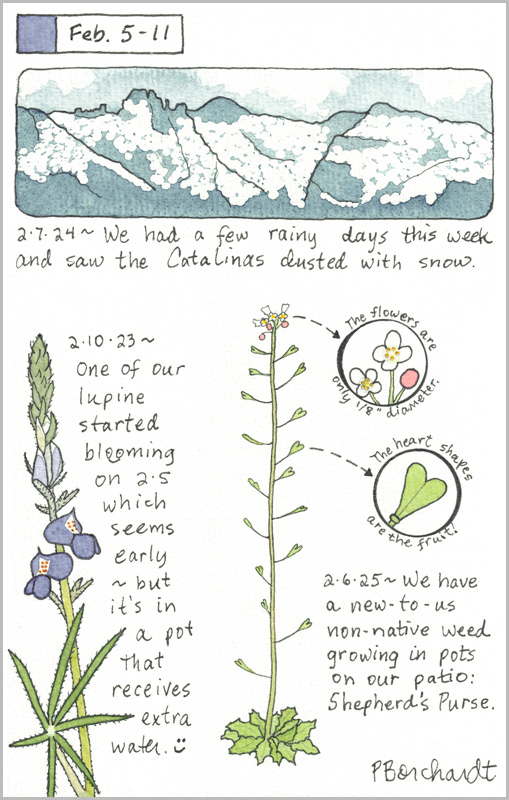 Feb. 5-11
2.7.24~ We had a few rainy days this week
and saw the Catalinas dusted with snow.
2.10.23~
One of our
lupine
started
blooming
on 2.5
which
seems
early
~ but
it's in
a pot
that
receives
extra
water.
The flowers are
only 1/8" diameter.
The heart shapes
are the fruit!
2.6.25~ We have
a new-to-us
non-native weed
growing in pots
on our patio:
Shepherd's Purse.
PBorchardt